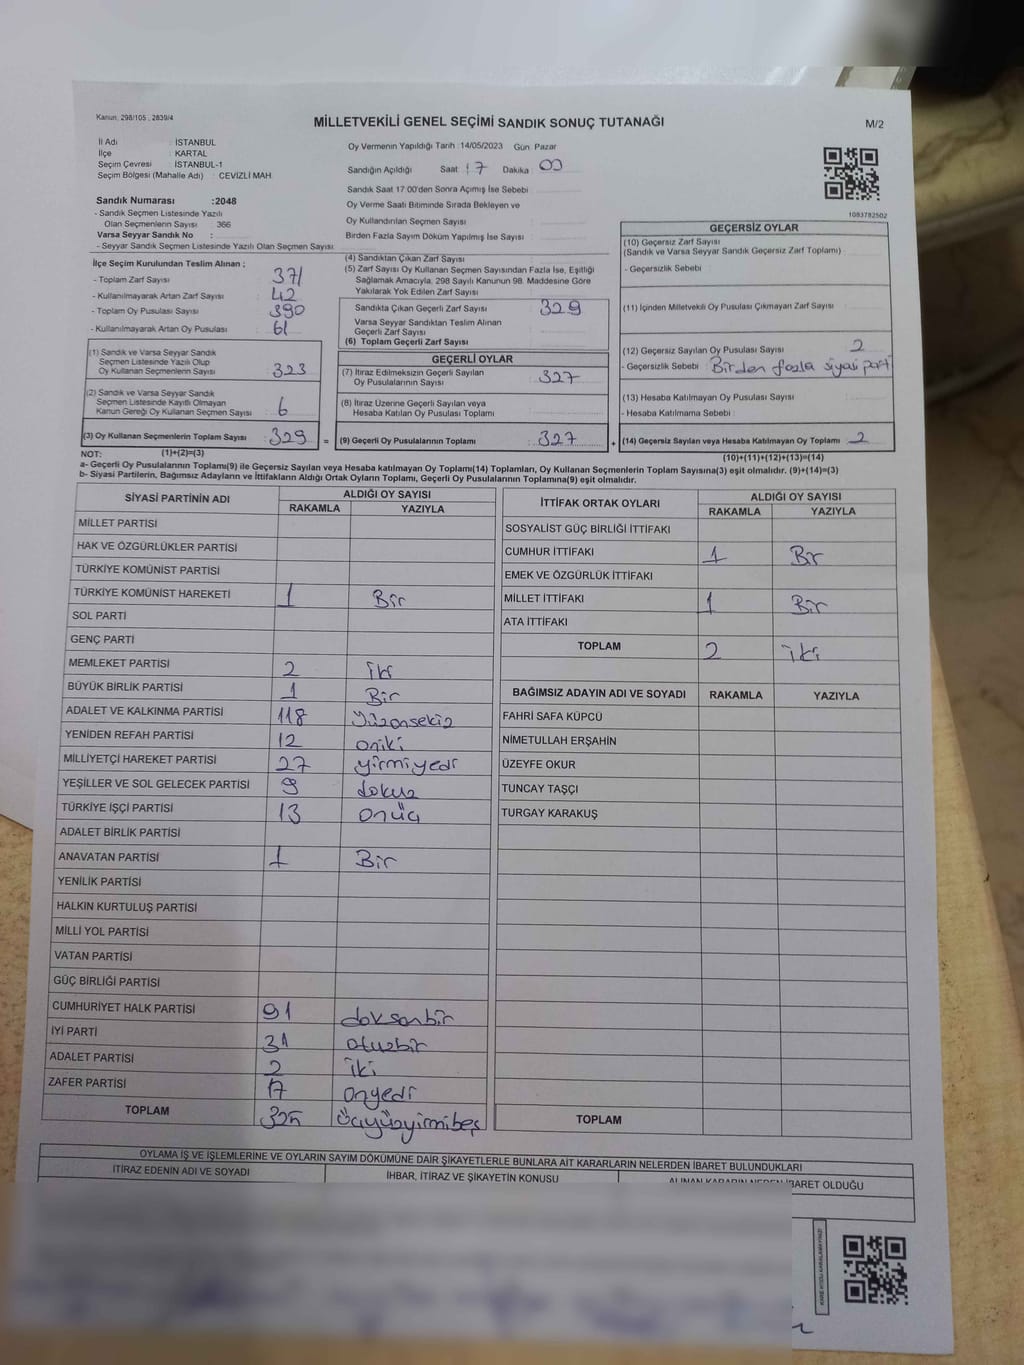 Kanun, 298/105 , 2839/4
MİLLETVEKİLİ GENEL SEÇİMİ SANDIK SONUÇ TUTANAĞI
M/2
İl Adı : İSTANBUL
İlçe : KARTAL
Seçim Çevresi : İSTANBUL-1
Seçim Bölgesi (Mahalle Adı) : CEVİZLİ MAH.
Oy Vermenin Yapıldığı Tarih :14/05/2023 Gün Pazar
Sandığın Açıldığı Saat 17 Dakika 00
Sandık Saat 17:00'den Sonra Açımış İse Sebebi
Oy Verme Saati Bitiminde Sırada Bekleyen ve
Oy Kullandırılan Seçmen Sayısı
Birden Fazla Sayım Döküm Yapılmış İse Sayısı
1083782502
Sandık Numarası :2048
- Sandık Seçmen Listesinde Yazılı
Olan Seçmenlerin Sayısı 366
Varsa Seyyar Sandık No :
- Seyyar Sandık Seçmen Listesinde Yazılı Olan Seçmen Sayısı
İlçe Seçim Kurulundan Teslim Alınan ;
- Toplam Zarf Sayısı : 371
- Kullanılmayarak Artan Zarf Sayısı : 42
- Toplam Oy Pusulası Sayısı : 390
- Kullanılmayarak Artan Oy Pusulası : 61
(1) Sandık ve Varsa Seyyar Sandık
Seçmen Listesinde Yazılı Olup
Oy Kullanan Seçmenlerin Sayısı : 323
(2) Sandık ve Varsa Seyyar Sandık
Seçmen Listesinde Kayıtlı Olmayan
Kanun Gereği Oy Kullanan Seçmen Sayısı : 6
(3) Oy Kullanan Seçmenlerin Toplam Sayısı : 329 =
(1)+(2)=(3)
(4) Sandıktan Çıkan Zarf Sayısı
(5) Zarf Sayısı Oy Kullanan Seçmen Sayısından Fazla İse, Eşitliği
Sağlamak Amacıyla, 298 Sayılı Kanunun 98. Maddesine Göre
Yakılarak Yok Edilen Zarf Sayısı
Sandıkta Çıkan Geçerli Zarf Sayısı 329
Varsa Seyyar Sandıktan Teslim Alınan
Geçerli Zarf Sayısı
(6) Toplam Geçerli Zarf Sayısı
GEÇERLİ OYLAR
(7) İtiraz Edilmeksizin Geçerli Sayılan
Oy Pusulalarının Sayısı : 327
(8) İtiraz Üzerine Geçerli Sayılan veya
Hesaba Katılan Oy Pusulası Toplamı
(9) Geçerli Oy Pusulalarının Toplamı : 327 +
GEÇERSİZ OYLAR
(10) Geçersiz Zarf Sayısı
(Sandık ve Varsa Seyyar Sandık Geçersiz Zarf Toplamı)
- Geçersizlik Sebebi :
(11) İçinden Milletvekili Oy Pusulası Çıkmayan Zarf Sayısı
(12) Geçersiz Sayılan Oy Pusulası Sayısı 2
- Geçersizlik Sebebi : Birden fazla siyasi parti
(13) Hesaba Katılmayan Oy Pusulası Sayısı
- Hesaba Katılmama Sebebi :
(14) Geçersiz Sayılan veya Hesaba Katılmayan Oy Toplamı : 2
(10)+(11)+(12)+(13)=(14)
NOT:
a- Geçerli Oy Pusulalarının Toplamı(9) ile Geçersiz Sayılan veya Hesaba katılmayan Oy Toplamı(14) Toplamları, Oy Kullanan Seçmenlerin Toplam Sayısına(3) eşit olmalıdır. (9)+(14)=(3)
b- Siyasi Partilerin, Bağımsız Adayların ve İttifakların Aldığı Ortak Oyların Toplamı, Geçerli Oy Pusulalarının Toplamına(9) eşit olmalıdır.
SİYASİ PARTİNİN ADI ALDIĞI OY SAYISI
RAKAMLA YAZIYLA
MİLLET PARTİSİ
HAK VE ÖZGÜRLÜKLER PARTİSİ
TÜRKİYE KOMÜNİST PARTİSİ
TÜRKİYE KOMÜNİST HAREKETİ 1 Bir
SOL PARTİ
GENÇ PARTİ
MEMLEKET PARTİSİ 2 iki
BÜYÜK BİRLİK PARTİSİ 1 Bir
ADALET VE KALKINMA PARTİSİ 118 Yüzonsekiz
YENİDEN REFAH PARTİSİ 12 oniki
MİLLİYETÇİ HAREKET PARTİSİ 27 yirmiyedi
YEŞİLLER VE SOL GELECEK PARTİSİ 9 dokuz
TÜRKİYE İŞÇİ PARTİSİ 13 onüç
ADALET BİRLİK PARTİSİ
ANAVATAN PARTİSİ 1 Bir
YENİLİK PARTİSİ
HALKIN KURTULUŞ PARTİSİ
MİLLİ YOL PARTİSİ
VATAN PARTİSİ
GÜÇ BİRLİĞİ PARTİSİ
CUMHURİYET HALK PARTİSİ 91 doksanbir
İYİ PARTİ 31 otuzbir
ADALET PARTİSİ 2 iki
ZAFER PARTİSİ 17 onyedi
TOPLAM 325 üçyüzyirmibeş
İTTİFAK ORTAK OYLARI ALDIĞI OY SAYISI
RAKAMLA YAZIYLA
SOSYALİST GÜÇ BİRLİĞİ İTTİFAKI
CUMHUR İTTİFAKI 1 Bir
EMEK VE ÖZGÜRLÜK İTTİFAKI
MİLLET İTTİFAKI 1 Bir
ATA İTTİFAKI
TOPLAM 2 iki
BAĞIMSIZ ADAYIN ADI VE SOYADI RAKAMLA YAZIYLA
FAHRİ SAFA KÜPCÜ
NİMETULLAH ERŞAHİN
ÜZEYFE OKUR
TUNCAY TAŞÇI
TURGAY KARAKUŞ
TOPLAM
OYLAMA İŞ VE İŞLEMLERİNE VE OYLARIN SAYIM DÖKÜMÜNE DAİR ŞİKAYETLERLE BUNLARA AİT KARARLARIN NELERDEN İBARET BULUNDUKLARI
İTİRAZ EDENİN ADI VE SOYADI İHBAR, İTİRAZ VE ŞİKAYETİN KONUSU ALINAN KARARIN NEDEN İBARET OLDUĞU
KARE KODU KARALAMAYINIZ!